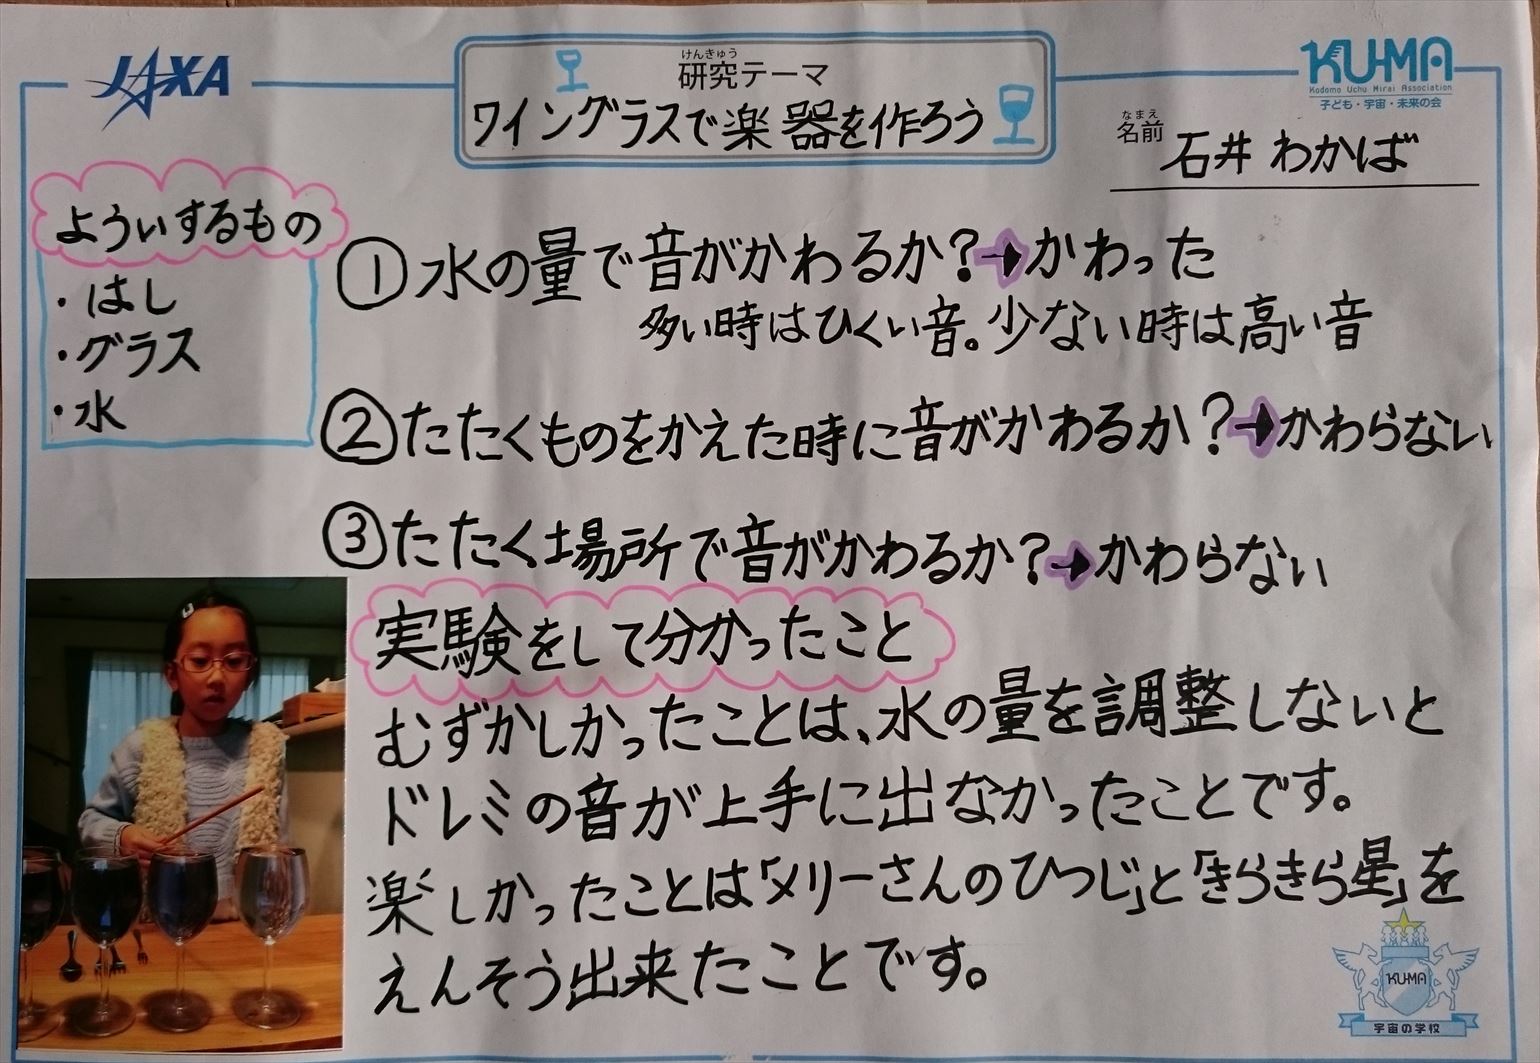 JAXA
けんきゅう
研究テーマ
ワイングラスで楽器を作ろう
KU-MA
Kodomo Uchu Mirai Association
子ども・宇宙・未来の会
なまえ
名前 石井 わかば
よういするもの
・はし
・グラス
・水
① 水の量で音がかわるか?→かわった
多い時はひくい音。少ない時は高い音
② たたくものをかえた時に音がかわるか?→かわらない
③ たたく場所で音がかわるか?→かわらない
実験をして分かったこと
むずかしかったことは、水の量を調整しないと
ドレミの音が上手に出なかったことです。
楽しかったことは「メリーさんのひつじ」と「きらきら星」を
えんそう出来たことです。
KU-MA
宇宙の学校